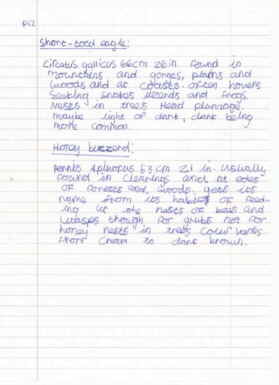 Short-toed eagle:
Circatus gallicus 66cm 26in found in
mountains and gorges, plains and
woods and at coasts often hovers
Seeking snakes lizards and frogs
Nests in trees Head plumage
maybe light or dark, dark being
more common
Honey buzzard:
Pernis apivorus 53cm 21 in. Usually
found in clearings and at edge
of forests and woods, gets its
name from its habit of feed-
ing at the nests of bees and
wasps though for grubs not for
honey nests in trees Color varies
from cream to dark brown.